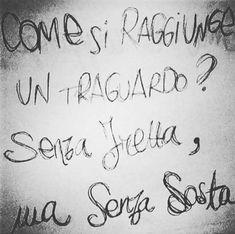 COME SI RAGGIUNGE
UN TRAGUARDO?
Senza fretta,
ma Senza Sosta